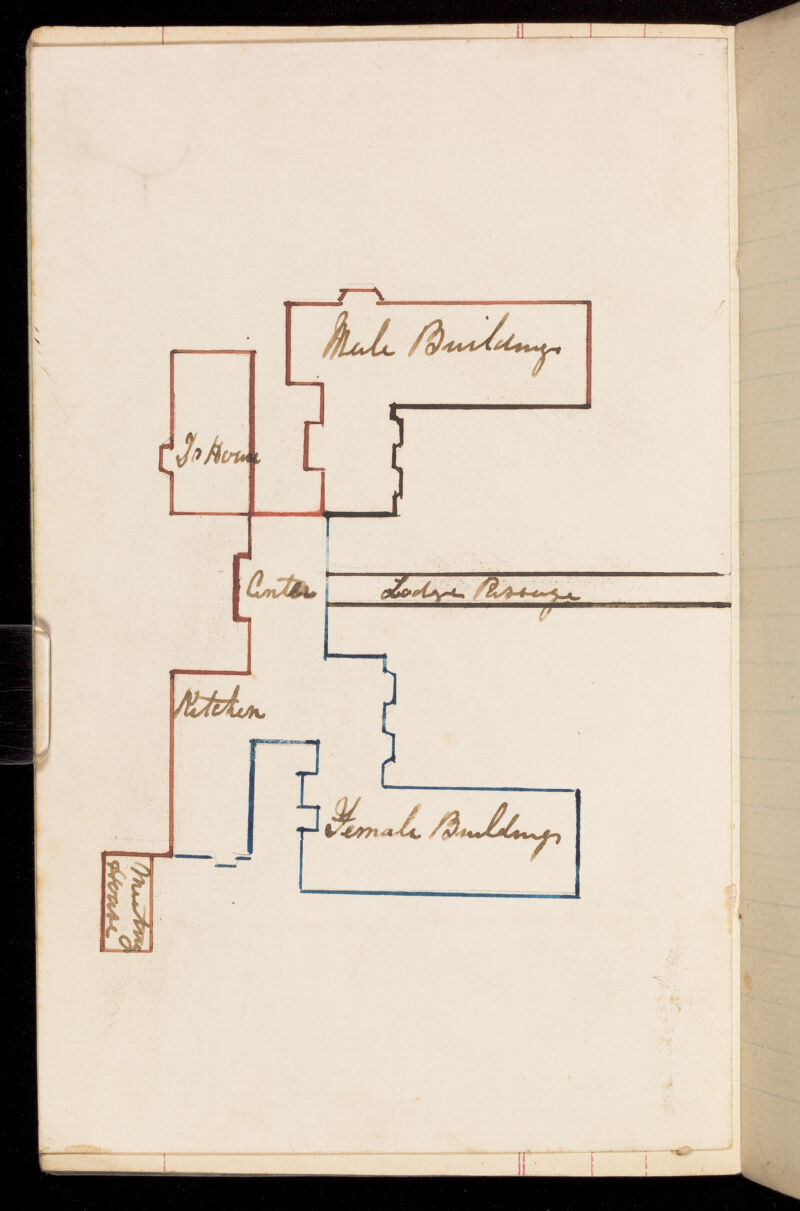 Male Buildings
Center
Lodge Passage
Kitchen
Female Buildings
Meeting
House